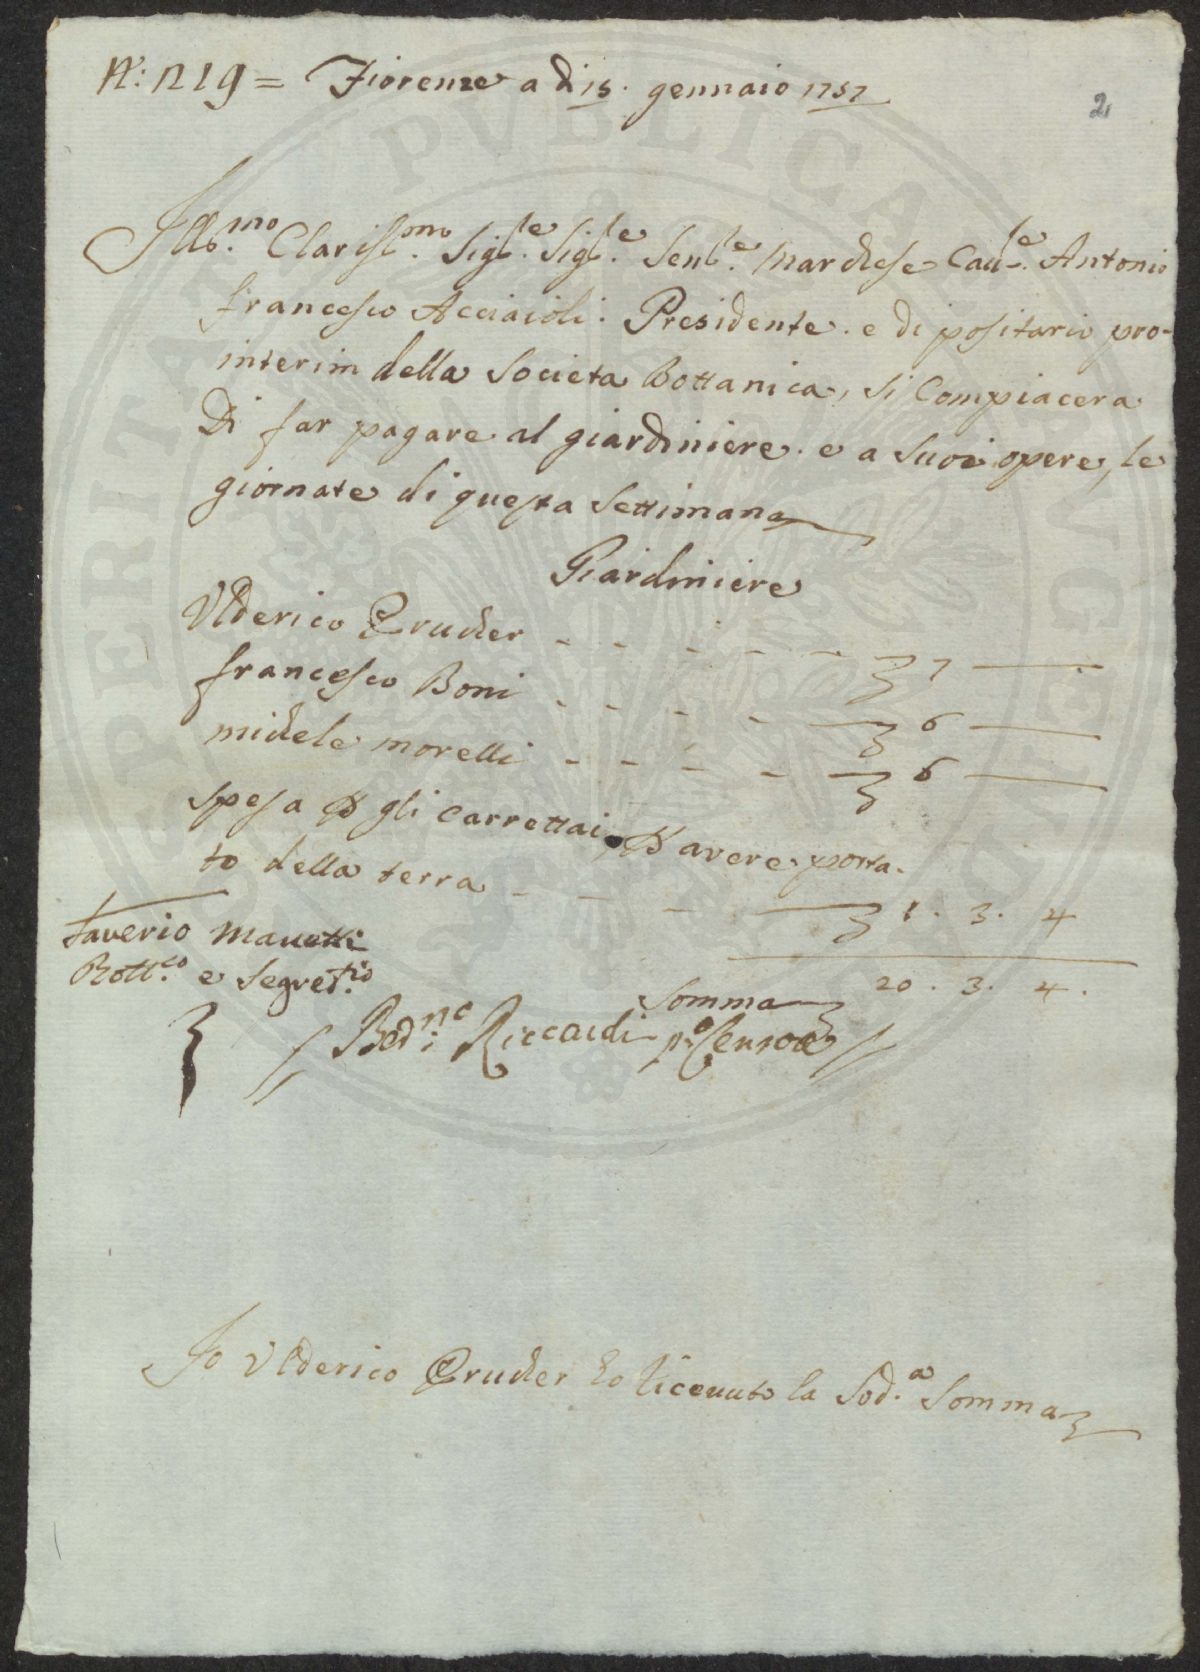 N.: 1219 = Fiorenze a di 15. gennaio 1757
2
Illⱴ.mo Clarisⱴ.mo Sigⱴ.e Sigⱴ.e Senⱴ.e Marchese Cauⱴ.e Antonio
francesco Acciaioli: Presidente. e di positario pro-
interim della Societa Bottanica, si Compiacera
Di far pagare al giardiniere. e a suoi opere, le
giornate di questa Settimana
Giardiniere
Vlderico Prucher - - - - - - 7 —
francesco Boni - - - - - 6 —
michele morelli - - - - - 6 —
spesa p gli carrettai, p avere porta-
to della terra - - - - 1. 3. 4
20. 3. 4.
Somma
Saverio Manetti
Bott.co e Segret.rio
Bed.no Riccardi p.o Censore
Io Vlderico Prucher ho Riceuuto la Sod.a Somma
PVBLICAE
PERITAT